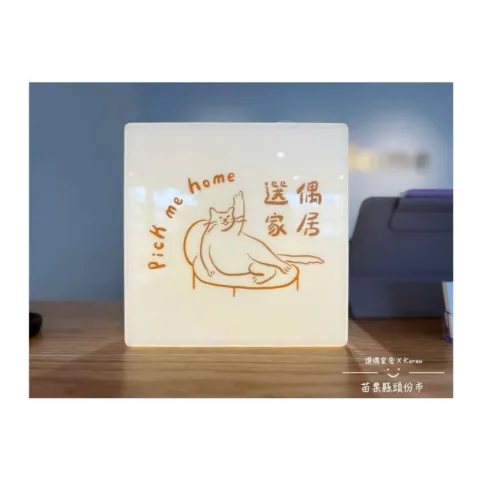 Pick me home
選偶
家居
選偶家居 X Karen
苗栗縣頭份市